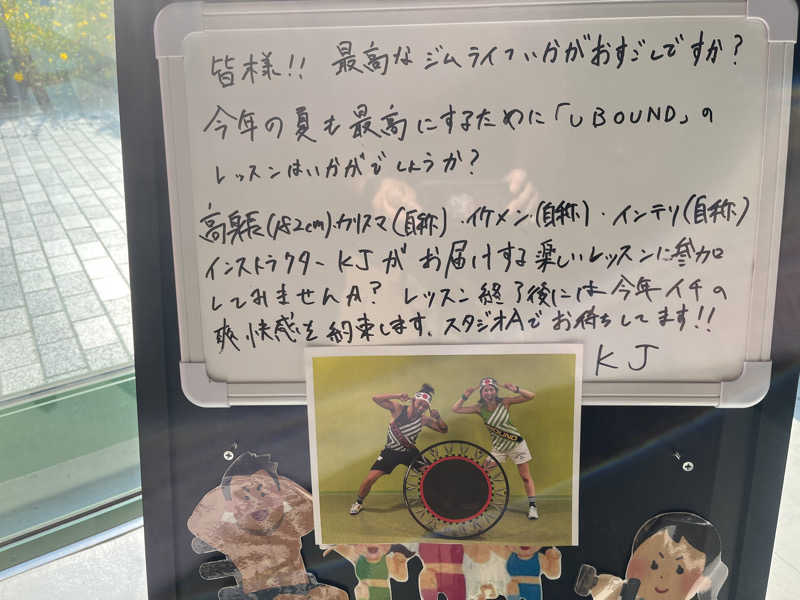 皆様!! 最高なジムライフいかがおすごしですか?
今年の夏も最高にするために「UBOUND」の
レッスンはいかがでしょうか?
高身長(182cm)・カリスマ(自称)・イケメン(自称)・インテリ(自称)
インストラクターKJがお届けする楽しいレッスンに参加
してみませんか? レッスン終了後には今年イチの
爽快感を約束します、スタジオAでお待ちしてます!!
KJ